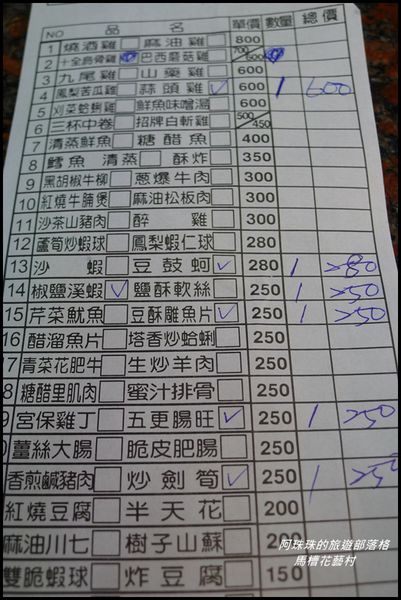 NO 品 名 單價 數量 總價
1 燒酒雞 麻油雞 800
2 十全烏骨雞 巴西蘑菇雞 700 600
3 九尾雞 山藥雞 600
4 鳳梨苦瓜雞 蒜頭雞 ✓ 600 1 600
5 刈菜蛤蜊雞 鮮魚味噌湯 600
6 三杯中卷 招牌白斬雞 500 450
7 清蒸鮮魚 糖醋魚 400
8 鱈魚 清蒸 酥炸 350
9 黑胡椒牛柳 蔥爆牛肉 300
10 紅燒牛腩煲 麻油松板肉 300
11 沙茶山豬肉 醉 雞 300
12 蘆筍炒蝦球 鳳梨蝦仁球 280
13 沙 蝦 豆鼓蚵 ✓ 280 1 280
14 椒鹽溪蝦 ✓ 鹽酥軟絲 250 1 250
15 芹菜魷魚 豆酥雕魚片 ✓ 250 1 250
16 醋溜魚片 塔香炒蛤蜊 250
17 青菜花肥牛 生炒羊肉 250
8 糖醋里肌肉 蜜汁排骨 250
9 宮保雞丁 五更腸旺 ✓ 250 1 250
0 薑絲大腸 脆皮肥腸 250
香煎鹹豬肉 炒劍筍 ✓ 250 1 250
紅燒豆腐 半天花 200
麻油川七 樹子山蘇 200
雙脆蝦球 炸豆腐 150
阿珠珠的旅遊部落格
馬槽花藝村